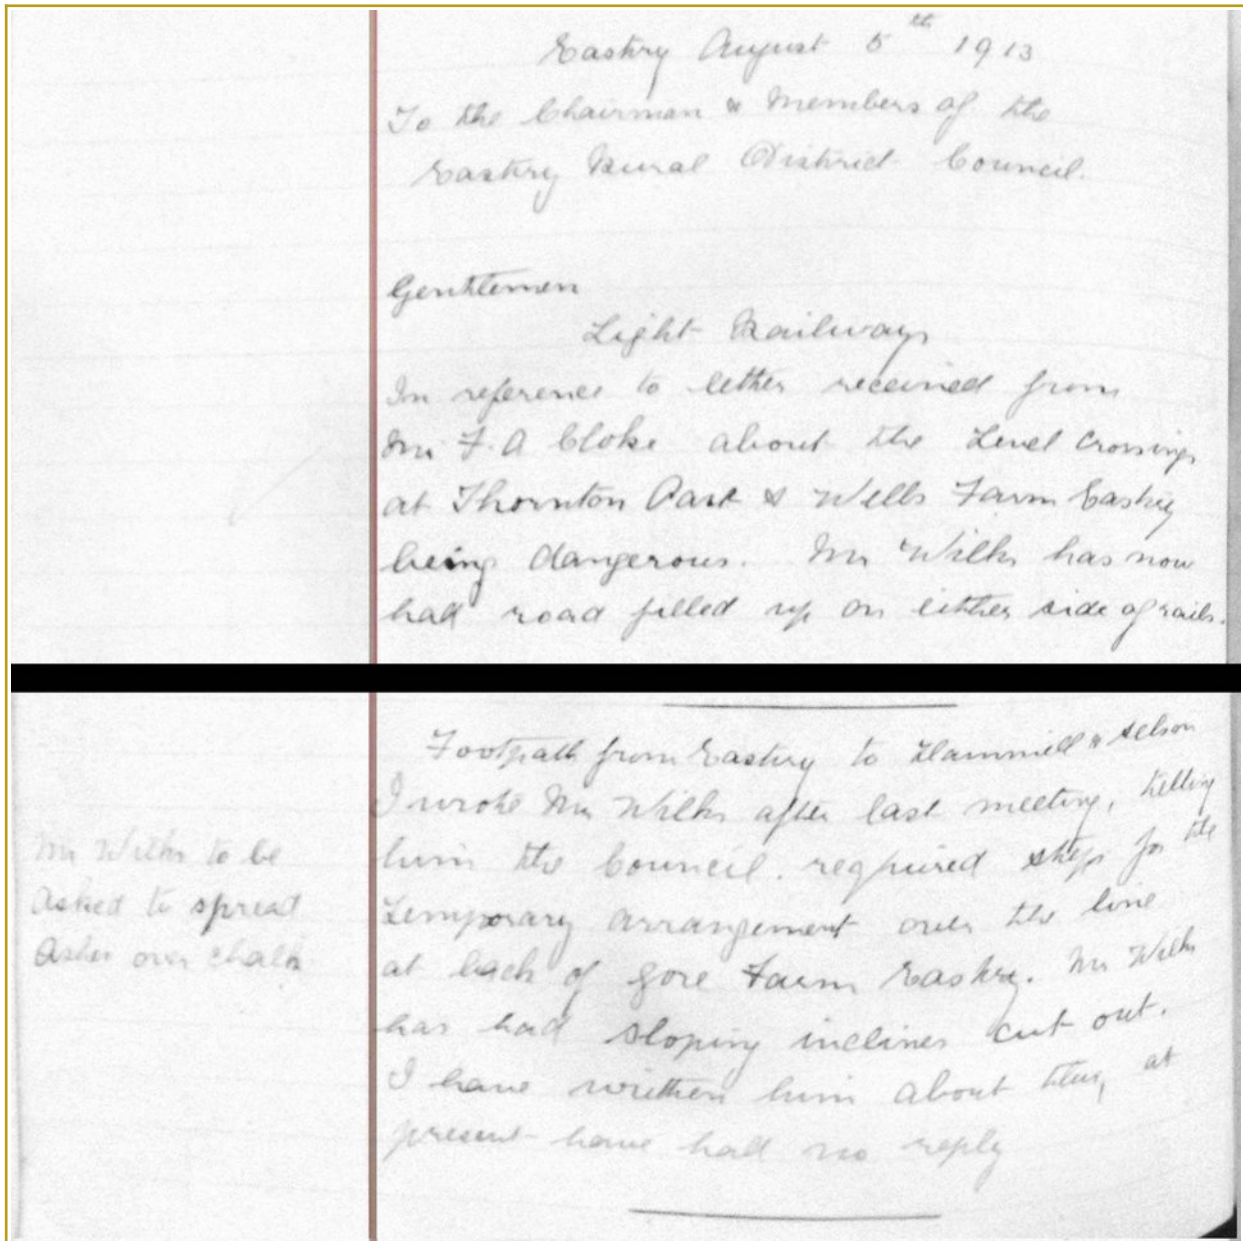 Eastry August 5th 1913
To the Chairman & Members of the
Eastry Rural District Council.
Gentlemen
Light Railways
In reference to letter received from
Mr F. A Cloke about the Level crossings
at Thornton Park & Wells Farm Eastry
being dangerous. Mr Wilks has now
had road filled up on either side of rails.
Footpath from Eastry to Hammill & Selson
I wrote Mr Wilks after last meeting, telling
him the Council. required steps for the
temporary arrangement over the line
at back of Gore Farm Eastry. Mr Wilks
has had sloping inclines cut out.
I have written him about them, at
present have had no reply
Mr Wilks to be
asked to spread
ashes over chalk